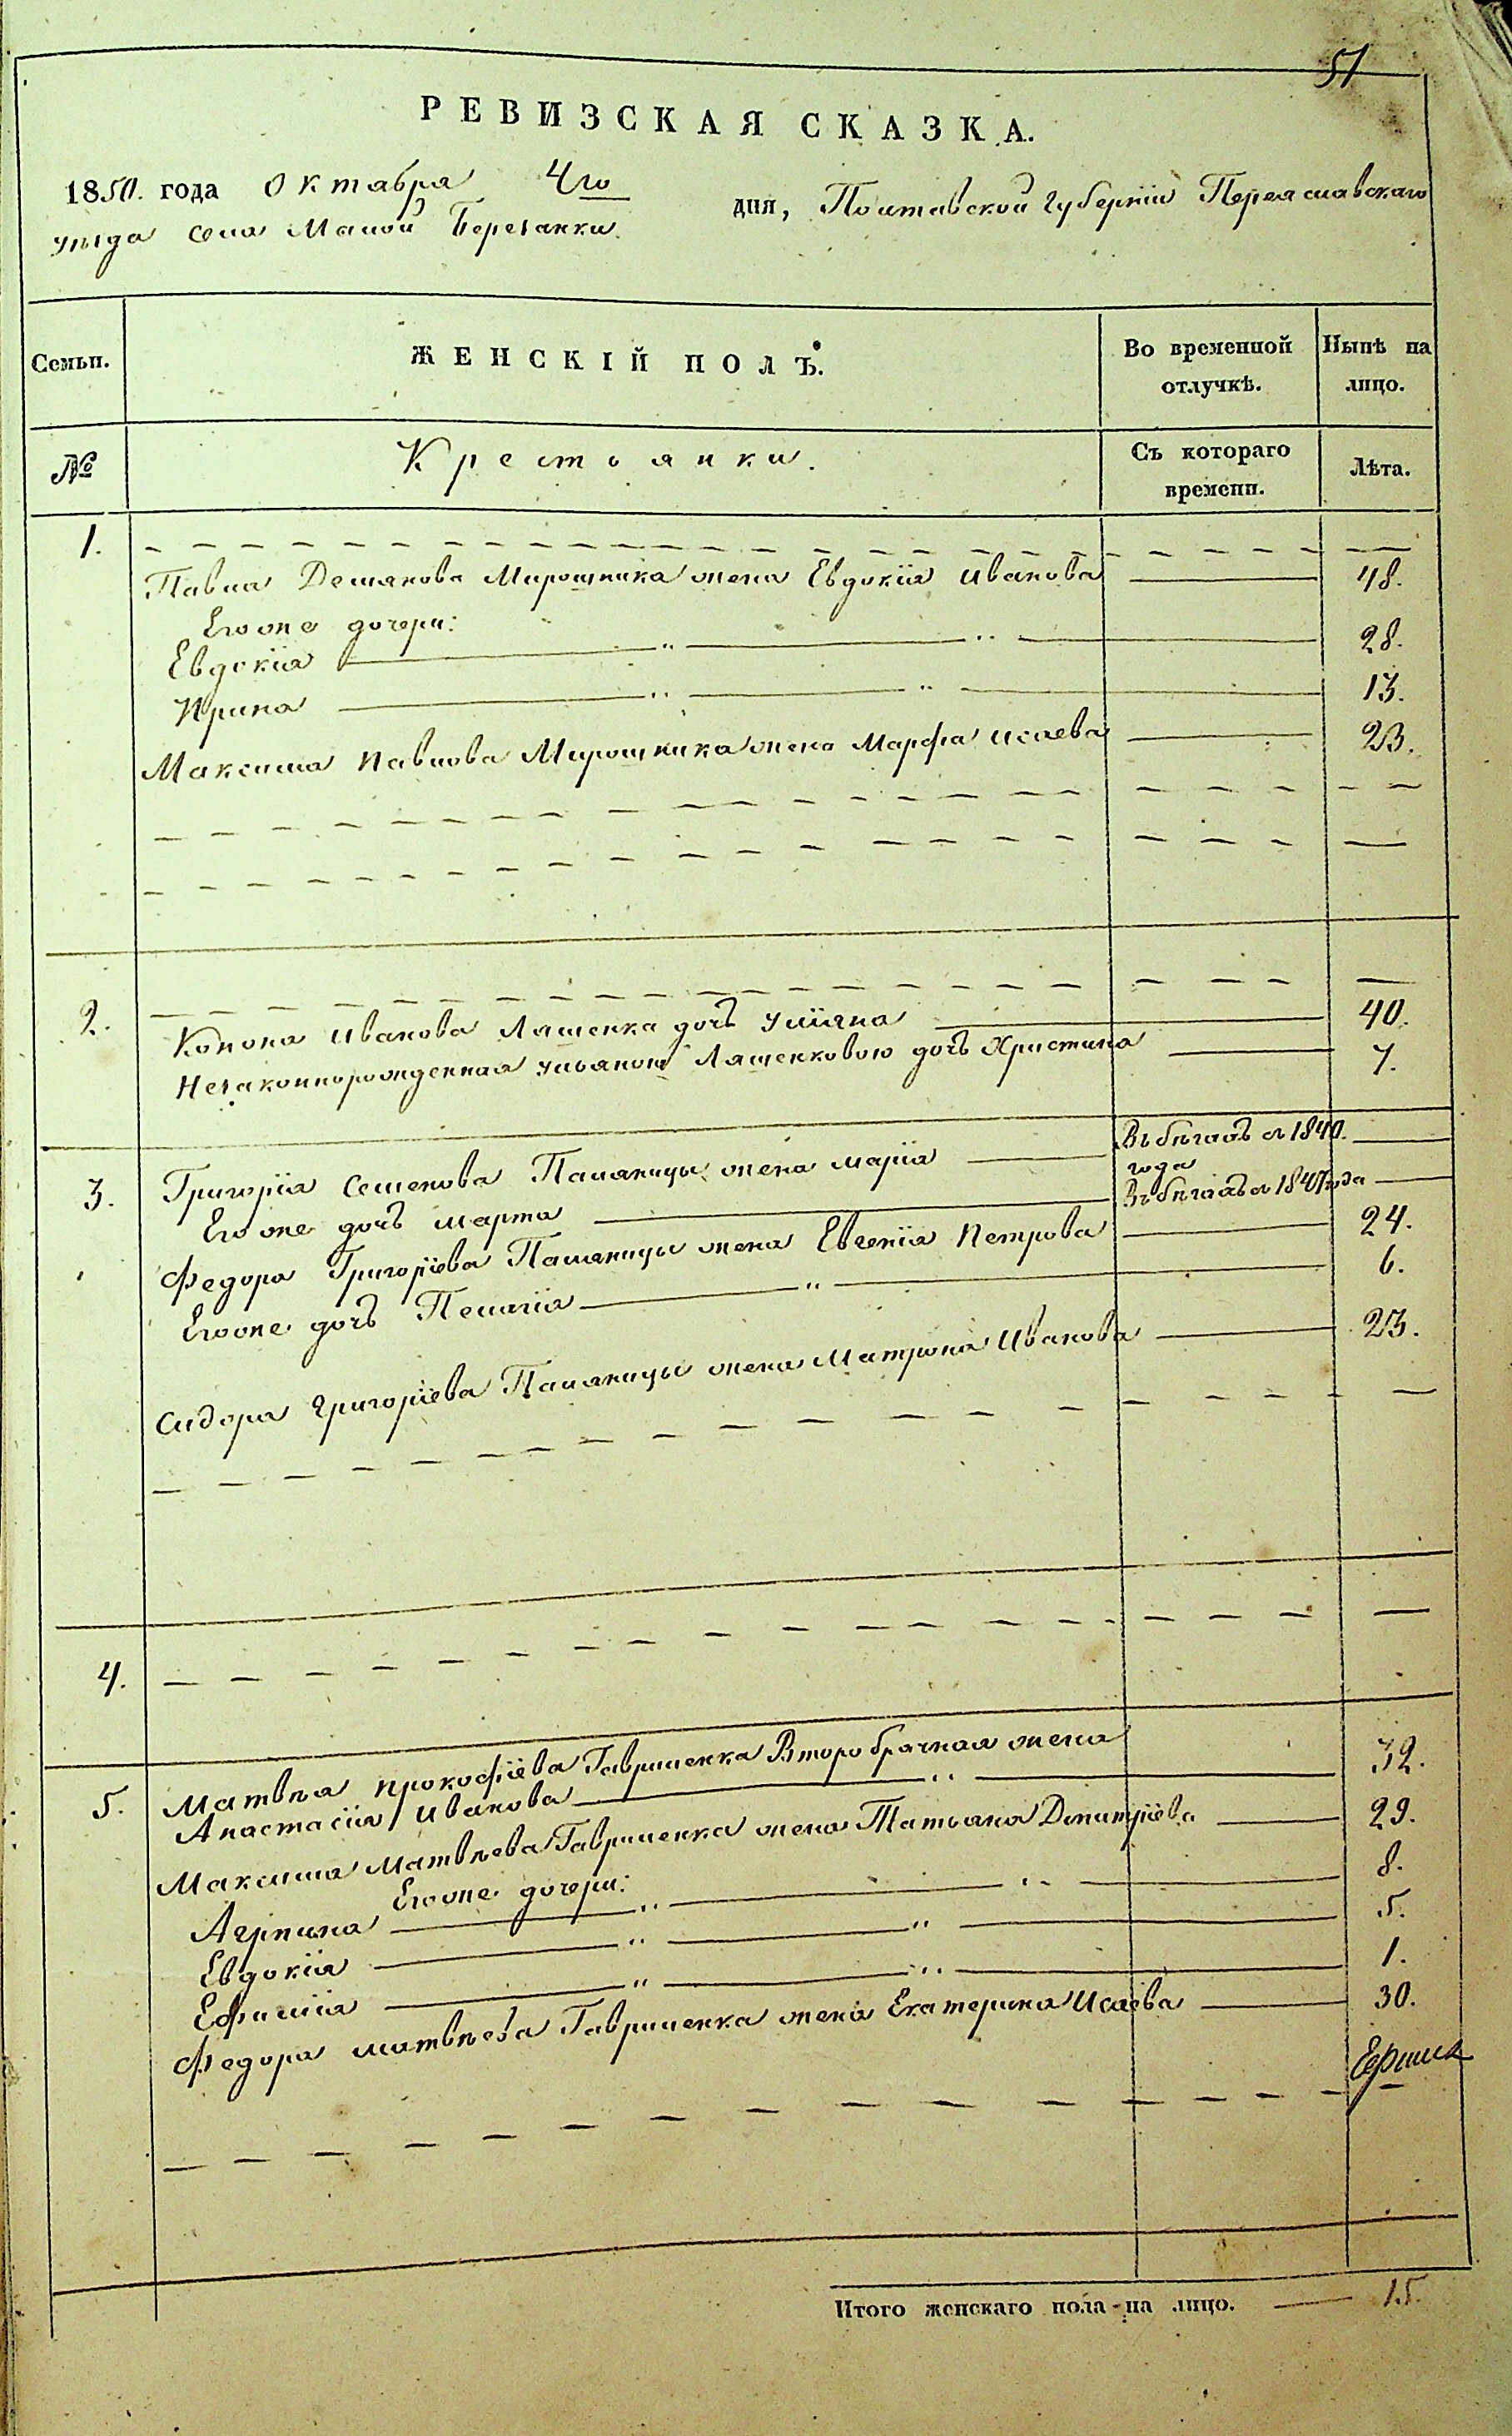 51
РЕВИЗСКАЯ СКАЗКА.
1850. года Октября 4го дня, Полтавской Губерніи Переяславскаго
уѣзда села Малой Березанки.
Семьи. ЖЕНСКІЙ ПОЛЪ. Во временной отлучкѣ. Нынѣ на лицо.
№ Крестьянки. Съ котораго времени. Лѣта.
1.
Павла Демянова Мирошника жена Евдокія Иванова 48.
Его же дочери:
Евдокія " " 28.
Ирина " " 13.
Максима Павлова Мирошника жена Марфа Исаева 23.
2.
Конона Иванова Ляшенка дочь Уліяна 40.
Незаконнорожденная Ульяною Ляшенковою дочь Христина 7.
3. Григорія Семенова Паляницы жена Марія Въ бѣгахъ съ 1840. года
Его же дочь Марта Въ бѣгахъ съ 1847 года
Федора Григоріева Паляницы жена Евгенія Петрова 24.
Его же дочь Пелагія " 6.
Сидора Григоріева Паляницы жена Матрона Иванова 23.
4.
5. Матвѣя Прокофіева Гавриленка Второбрачная жена
Анастасія Иванова " 32.
Максима Матвѣева Гавриленка жена Татьяна Дмитріева 29.
Его же дочери:
Агрипина " " 8.
Евдокія " " 5.
Ефимія " " 1.
Федора Матвѣева Гавриленка жена Екатерина Исаева 30.
Итого женскаго пола на лицо. 15.